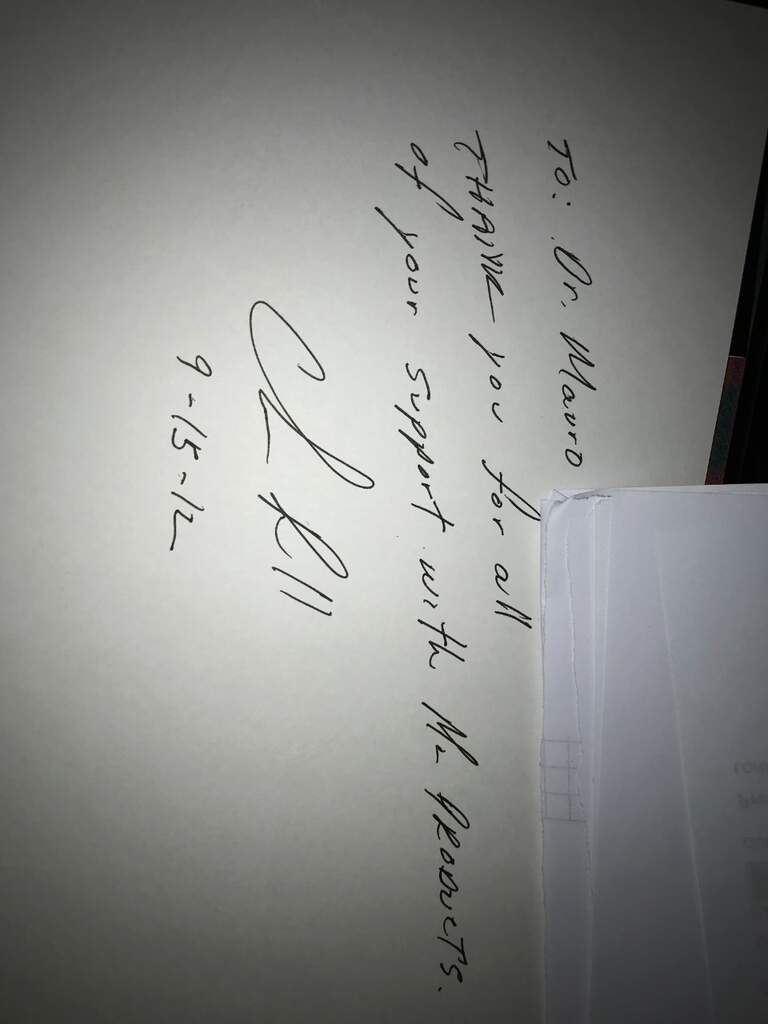 To: Dr. Mauro
THANK you for all
of your support with Me PRODUCTS.
9-15-12